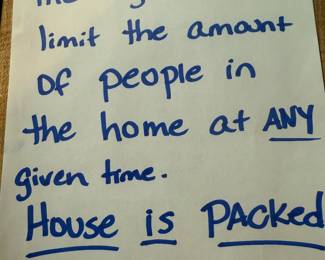 limit the amount
of people in
the home at ANY
given time.
House is PACKed